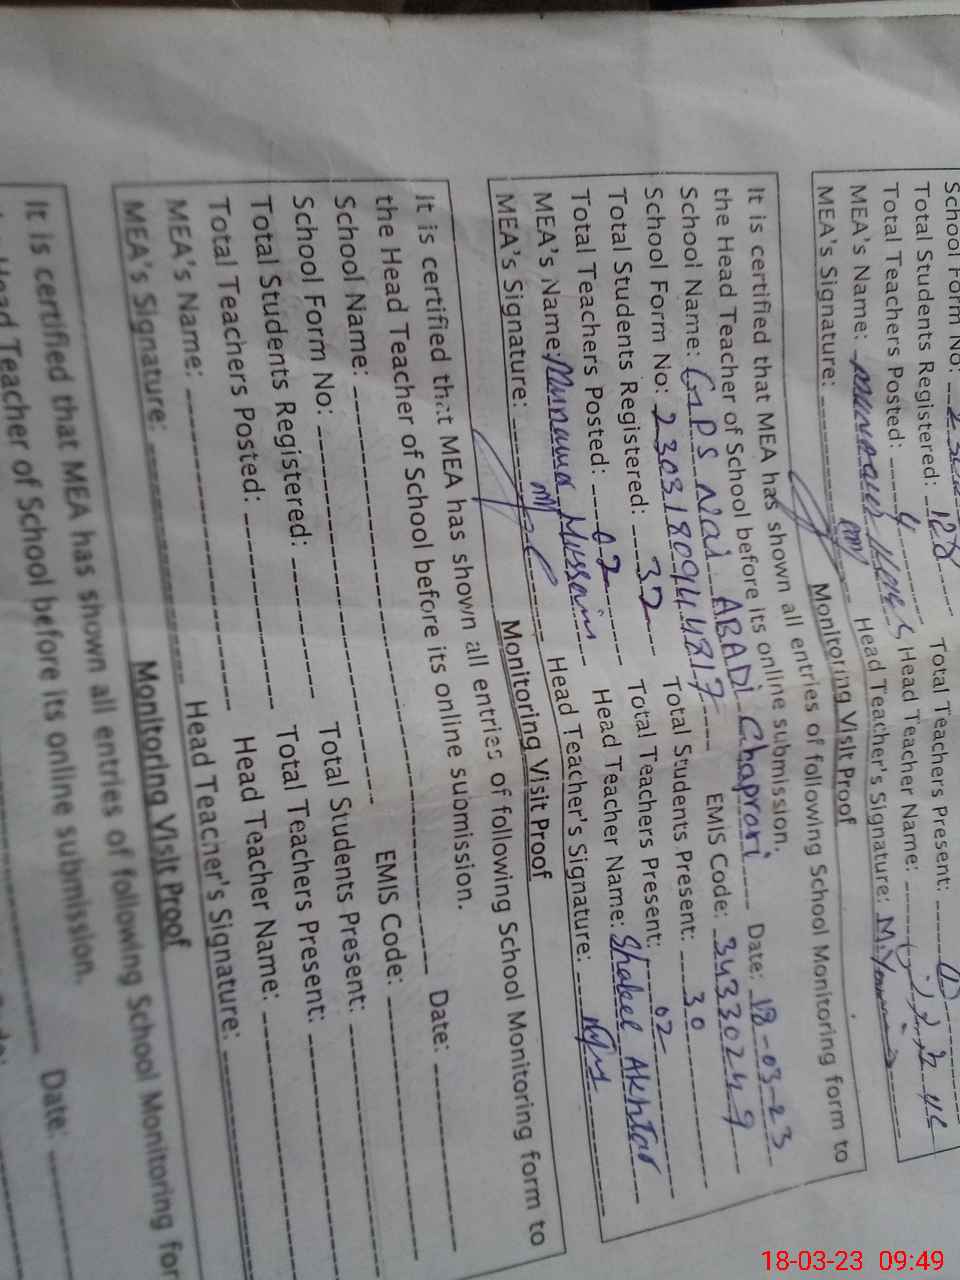 School Form No:
Total Students Registered: 128 Total Teachers Present:
Total Teachers Posted: 4 Head Teacher Name:
MEA's Name: Head Teacher's Signature:
MEA's Signature:
Monitoring Visit Proof
It is certified that MEA has shown all entries of following School Monitoring form to
the Head Teacher of School before its online submission.
School Name: GPS Nai ABADI Chaprari Date: 18-03-23
School Form No: EMIS Code:
Total Students Registered: 32 Total Students Present: 30
Total Teachers Posted: 02 Total Teachers Present: 02
MEA's Name: Hussain Head Teacher Name: Shakeel Akhtar
MEA's Signature: Head Teacher's Signature:
Monitoring Visit Proof
It is certified that MEA has shown all entries of following School Monitoring form to
the Head Teacher of School before its online submission.
School Name: Date:
School Form No: EMIS Code:
Total Students Registered: Total Students Present:
Total Teachers Posted: Total Teachers Present:
MEA's Name: Head Teacher Name:
MEA's Signature: Head Teacher's Signature:
Monitoring Visit Proof
It is certified that MEA has shown all entries of following School Monitoring for
Head Teacher of School before its online submission.
Date:
18-03-23 09:49